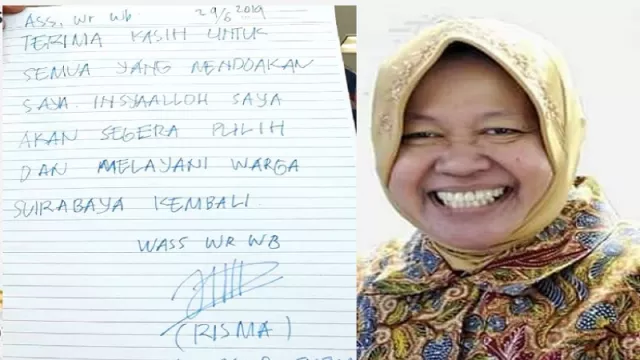 Ass. Wr Wb 29/6 2019
TERIMA KASIH UNTUK
SEMUA YANG MENDOAKAN
SAYA. INSYAALLOH SAYA
AKAN SEGERA PULIH
DAN MELAYANI WARGA
SURABAYA KEMBALI.
WASS WR WB
(RISMA)